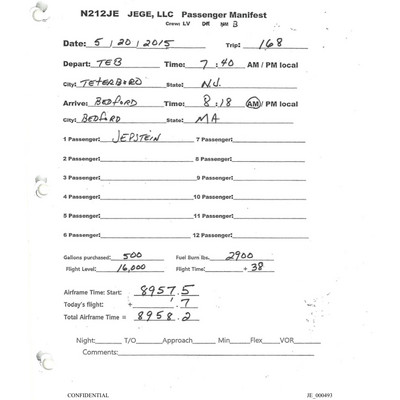 N212JE JEGE, LLC Passenger Manifest
Crew: LV DR NM B
Date: 5/20/2015 Trip: 168
Depart: TEB Time: 7:40 AM / PM local
City: TETERBORO State: NJ
Arrive: BEDFORD Time: 8:18 AM/ PM local
City: BEDFORD State: MA
1 Passenger: JEPSTEIN 7 Passenger:
2 Passenger: 8 Passenger:
3 Passenger: 9 Passenger:
4 Passenger: 10 Passenger:
5 Passenger: 11 Passenger:
6 Passenger: 12 Passenger:
Gallons purchased: 500 Fuel Burn lbs. 2900
Flight Level: 16,000 Flight Time: + 38
Airframe Time: Start: 8957.5
Today's flight: + .7
Total Airframe Time = 8958.2
Night: T/O Approach Min Flex VOR
Comments:
CONFIDENTIAL JE_000493